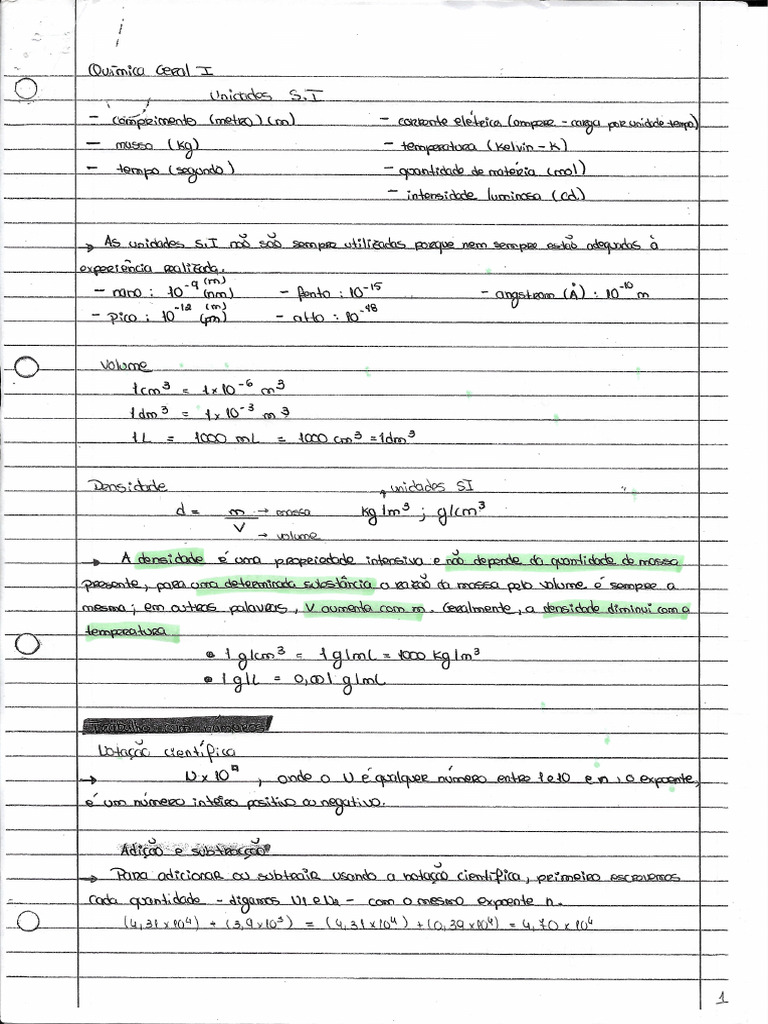 Química Geral I
Unidades S.I
- comprimento (metro) (m) - corrente elétrica (ampere - carga por unidade tempo)
- massa (kg) - temperatura (Kelvin - K)
- tempo (segundo) - quantidade de matéria (mol)
- intensidade luminosa (cd)
→ As unidades S.I não são sempre utilizadas porque nem sempre estão adequadas à
experiência realizada.
- nano : 10⁻⁹ (m) (nm) - fento : 10⁻¹⁵ - angstrom (Å) : 10⁻¹⁰ m
- pico : 10⁻¹² (m) (pm) - atto : 10⁻¹⁸
Volume
1cm³ = 1x10⁻⁶ m³
1dm³ = 1x10⁻³ m³
1L = 1000 mL = 1000 cm³ = 1dm³
Densidade unidades SI
d = m/V → massa → volume kg/m³ ; g/cm³
→ A densidade é uma propriedade intensiva e não depende da quantidade de massa
presente, para uma determinada substância a razão da massa pelo volume é sempre a
mesma; em outras palavras, V aumenta com m. Geralmente, a densidade diminui com a
temperatura.
• 1 g/cm³ = 1 g/mL = 1000 kg/m³
• 1 g/L = 0,001 g/mL
Trabalho com números
Notação científica
→ N x 10ⁿ , onde o N é qualquer número entre 1 e 10 e n, o expoente,
é um número inteiro positivo ou negativo.
Adição e subtracção
→ Para adicionar ou subtrair usando a notação científica, primeiro escrevemos
cada quantidade - digamos N1 e N2 - com o mesmo expoente n.
(4,31x10⁴) + (3,9x10³) = (4,31x10⁴) + (0,39x10⁴) = 4,70x10⁴
1